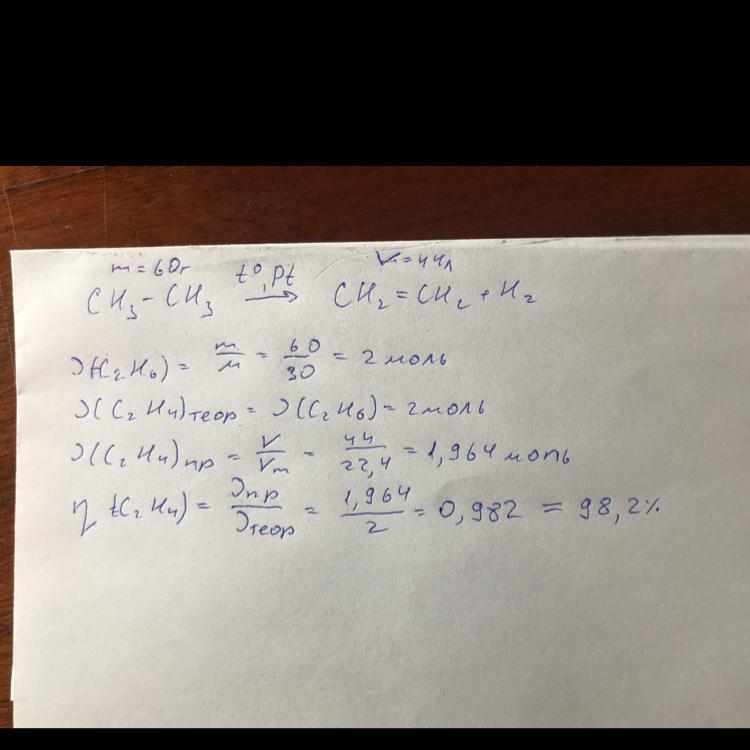 m = 60г V = 44л
CH₃-CH₃ t°, Pt → CH₂ = CH₂ + H₂
ν(C₂H₆) = m/M = 60/30 = 2 моль
ν(C₂H₄)теор = ν(C₂H₆) = 2 моль
ν(C₂H₄)пр = V/Vm = 44/22,4 = 1,964 моль
η(C₂H₄) = νпр/νтеор = 1,964/2 = 0,982 = 98,2%